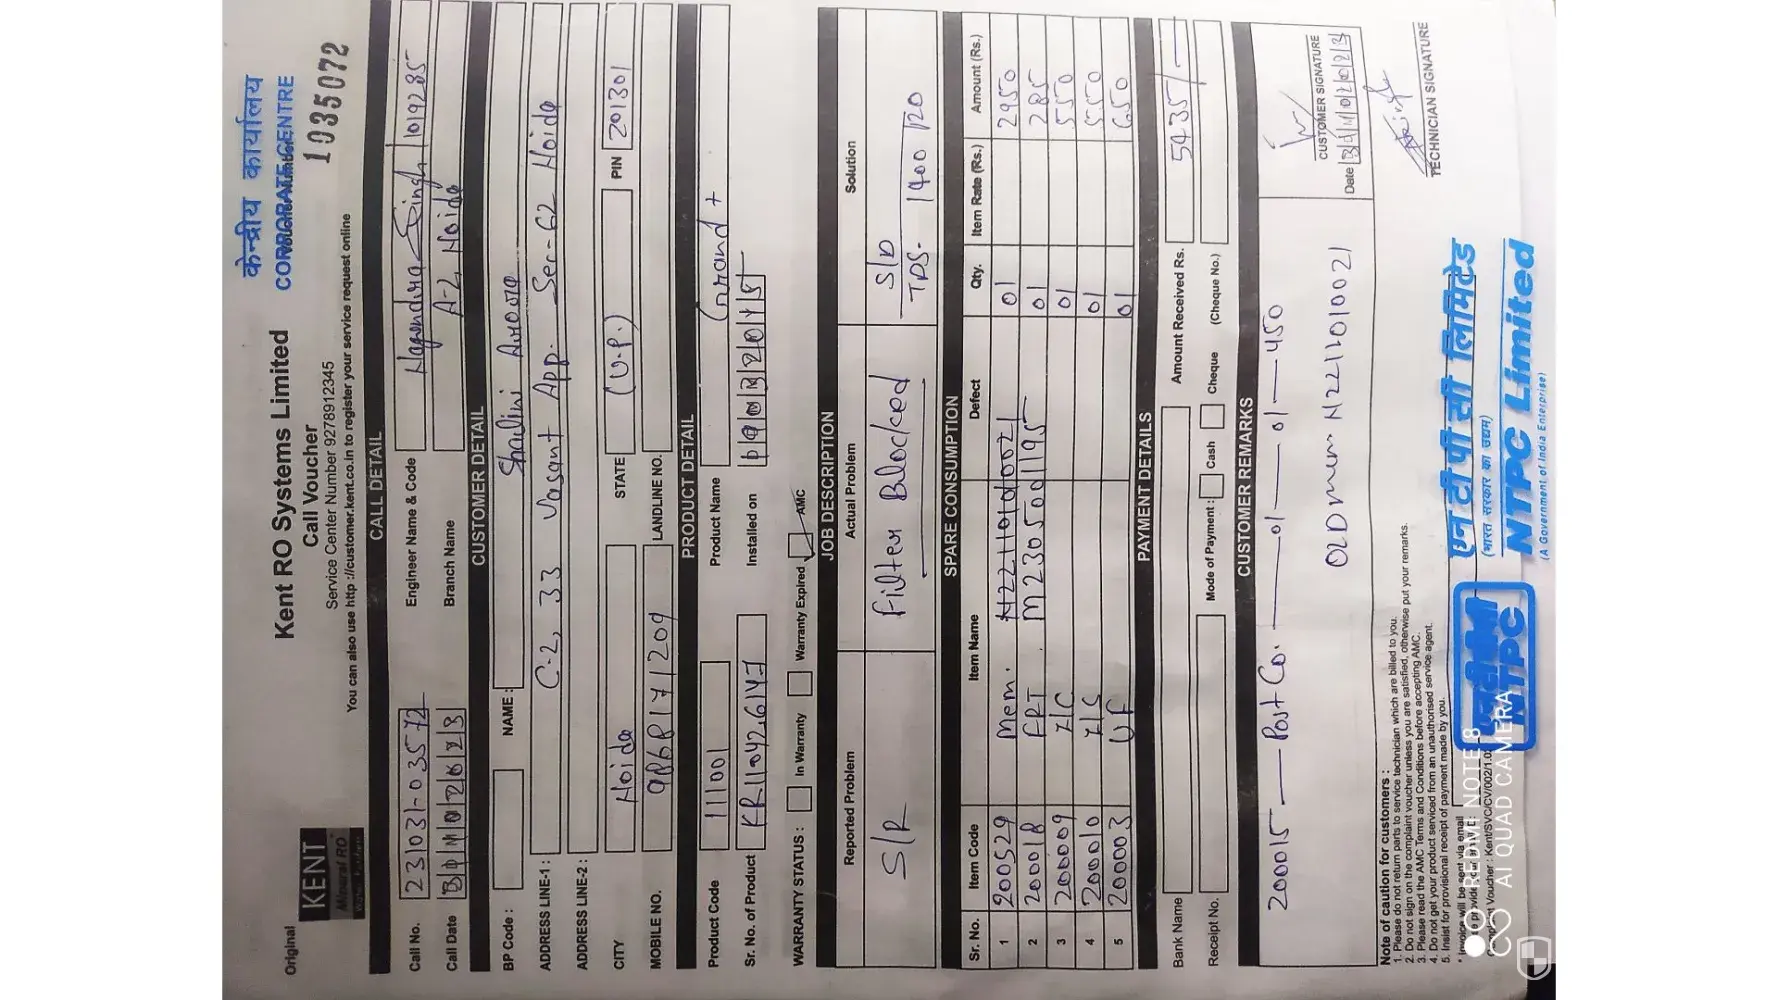 केन्द्रीय कार्यालय
CORPORATE CENTRE
1035072
Original
KENT
Mineral RO
Kent RO Systems Limited
Call Voucher
Service Center Number 9278912345
You can also use http ://customer.kent.co.in to register your service request online
CALL DETAIL
Call No. 231031-03572 Engineer Name & Code Nagendra Singh 019285
Call Date Branch Name A-2, Noida
CUSTOMER DETAIL
BP Code : NAME : Shalini Arora
ADDRESS LINE-1 : C-2, 33 Vasant App. Sec-62 Noida
ADDRESS LINE-2 :
CITY Noida STATE (U.P.) PIN 201301
MOBILE NO. 9868171209 LANDLINE NO.
PRODUCT DETAIL
Product Code 11001 Product Name Grand +
Sr. No. of Product Installed on
WARRANTY STATUS : In Warranty Warranty Expired AMC
JOB DESCRIPTION
Reported Problem Actual Problem Solution
S/R Filter Blocked S/D
TDS- 1400/20
SPARE CONSUMPTION
Sr. No. Item Code Item Name Defect Qty. Item Rate (Rs.) Amount (Rs.)
1 200529 Mem. 01 2950
2 200018 01 285
3 200009 I/C 01 550
4 200010 I/S 01 550
5 200003 UF 01 650
PAYMENT DETAILS
Bank Name Amount Received Rs. 5435/-
Receipt No. Mode of Payment : Cash Cheque (Cheque No.)
CUSTOMER REMARKS
200015 — Post Co. — 01 — 01 — 450
OLD mem N2211010021
CUSTOMER SIGNATURE
Date
TECHNICIAN SIGNATURE
Note of caution for customers :
1. Please do not return parts to service technician which are billed to you.
2. Do not sign on the complaint voucher unless you are satisfied, otherwise put your remarks.
3. Please read the AMC Terms and Conditions before accepting AMC.
4. Do not get your product serviced from an unauthorised service agent.
5. Insist for provisional receipt of payment made by you.
एन टी पी सी लिमिटेड
(भारत सरकार का उद्यम)
NTPC Limited
(A Government of India Enterprise)
NTPC
REDMI NOTE 8
AI QUAD CAMERA